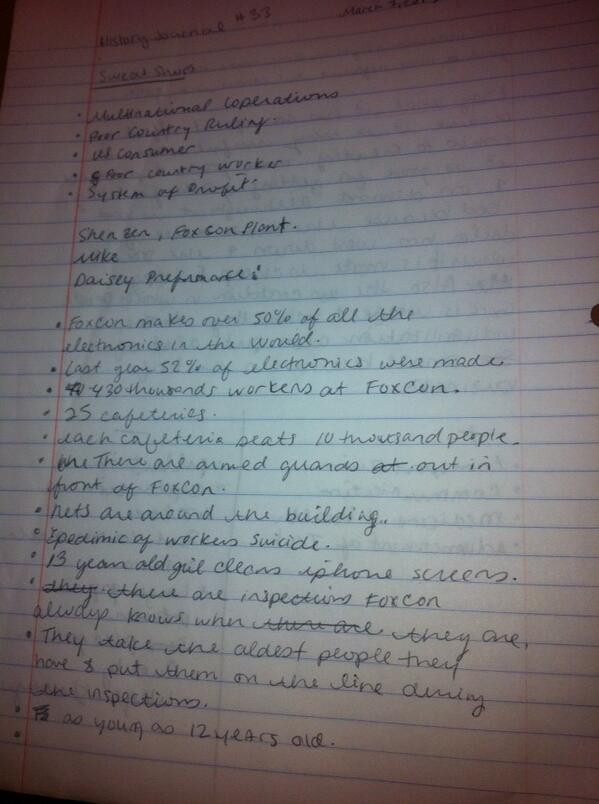 History Journal #33
March 7, 201
Sweat Shops
• Multinational Coperations
• Poor Country Ruling.
• US Consumer
• Poor country worker
• System of Profit.
Shenzen, FoxCon Plant.
Mike
Daisey Preformance:
• FoxCon makes over 50% of all the
electronics in the would.
• Last year 52% of electronics were made.
• 430 thousands workers at FoxCon.
• 25 cafeteries.
• each cafeteria seats 10 thousand people.
• There are armed guards at out in
front of FoxCon.
• nets are around the building.
• Epedimic of workers suicide.
• 13 year old girl cleans iphone screens.
• they there are inspections FoxCon
always knows when there are they are,
• They take the oldest people they
have & put them on the line during
the inspections.
• as young as 12 years old.
•